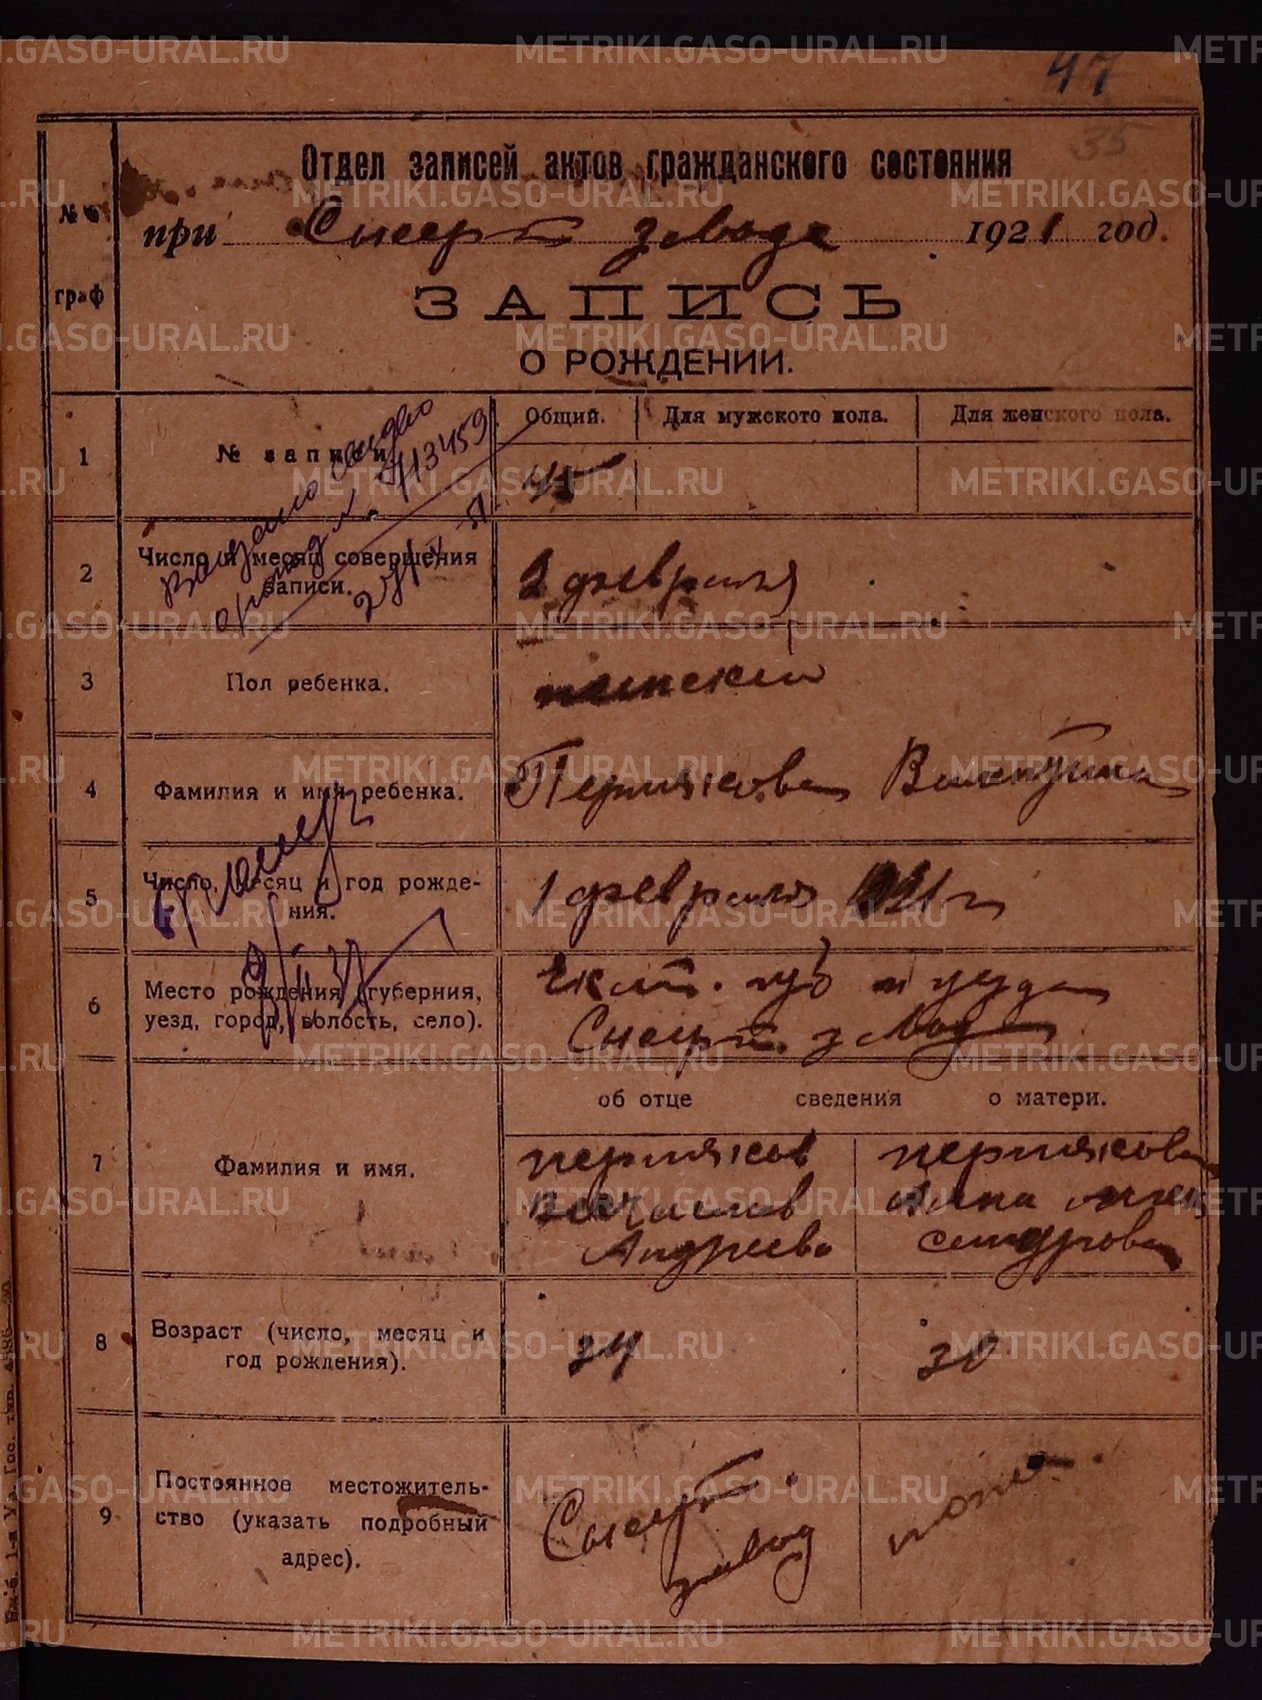 47
35
Отдел записей актов гражданского состояния
при Сысерт заводе 1921 год.
№№
граф
ЗАПИСЬ
О РОЖДЕНИИ.
1
№ записи
Общий.
Для мужского пола.
Для женского пола.
45
Выдано свид-во
№ 113459
2
Число и месяц совершения
записи.
2 февраля
3
Пол ребенка.
женский
4
Фамилия и имя ребенка.
Пермякова Валентина
5
Число, месяц и год рожде-
ния.
1 февраля 1921 г
6
Место рождения (губерния,
уезд, город, волость, село).
Екат. губ и уезда
Сысерт. завод
об отце сведения о матери.
7
Фамилия и имя.
пермяков
Вячислав
Андреев
пермякова
Анна Алек
сандрова
8
Возраст (число, месяц и
год рождения).
34
30
9
Постоянное местожитель-
ство (указать подробный
адрес).
Сысерт.
завод
тоже.
METRIKI.GASO-URAL.RU